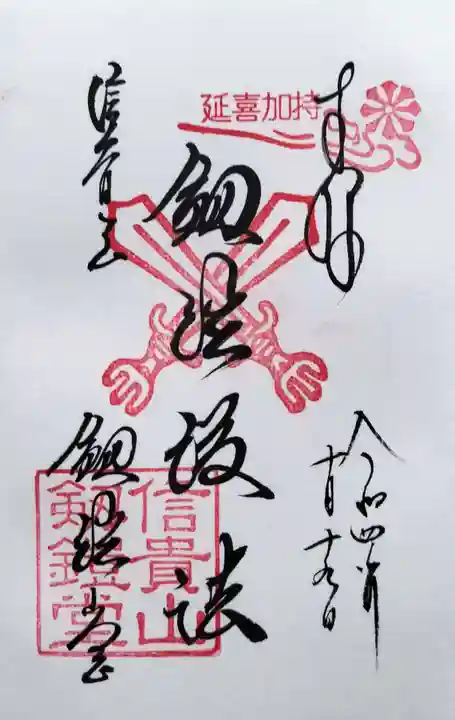 奉拝
延喜加持
令和四年
十月十九日
釼鎧護法
信貴山
釼鎧堂
信貴山
釼鎧堂